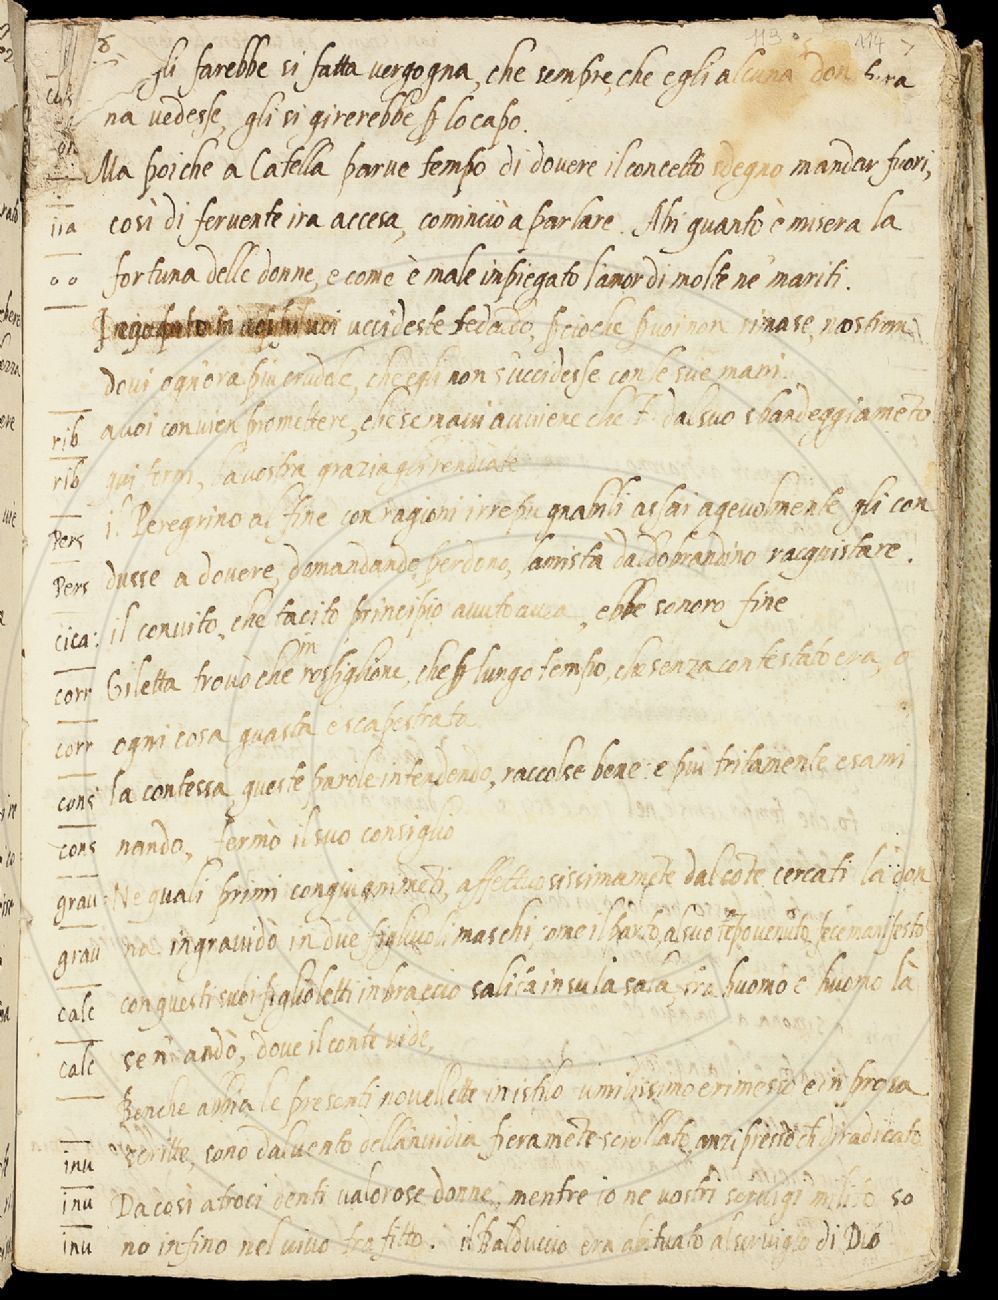 gli farebbe si fatta vergogna, che sempre, che egli alcuna don
na vedesse, gli si girerebbe p lo capo.
Ma poiche a Catella parve tempo di dovere il concetto sdegno mandar fuori,
così di fervente ira accesa, cominciò a parlare. Ahi quanto è misera la
fortuna delle donne, e come è male inpiegato l'amor di molte ne mariti.
voi uccideste tedaldo, p cioche p voi non rimase,
dovi ogn'ora più crudele, che egli non s'uccidesse con le sue mani.
a voi convien promettere, che se mai avviene che T. dal suo sbandeggiameto
qui torni, la vostra grazia gli rendiate
il Peregrino al fine con ragioni irrepugnabili assai agevolmente gli con
dusse a dovere, domandando perdono, l'amistà d'aldobrandino racquistare.
il convito, che tacito principio avuto avea, ebbe sonoro fine
Giletta trovò che in rossiglione, che p lungo tempo, che senza conte stato era,
ogni cosa guasta e scapestrata
la contessa queste parole intendendo, raccolse bene: e più tritamente esami
nando, fermò il suo consiglio
Ne quali primi congiugnimeti, affettuosissimamete dal cote cercati la don
na ingravidò in due figliuoli maschi, come il parto, al suo tepo venuto, fece manifesto
con questi suoi figlioletti in braccio salita in su la sala, fra huomo e huomo là
se n'andò, dove il conte vide,
Benche abbia le presenti novellette in istilo umilissimo e rimesso e in prosa
scritte, sono dal vento dell'invidia fieramete scrollato, anzi presso ch diradicato
Da così atroci denti valorose donne, mentre io ne vostri servigi milito so
no infino nel vivo trafitto. il Balduccio era abituato al servigio di Dio
ira
rib
rib
Pers
Pers
cica:
corr
corr
cons
cons
grav:
grav
calc
calc
inv
inv
inv